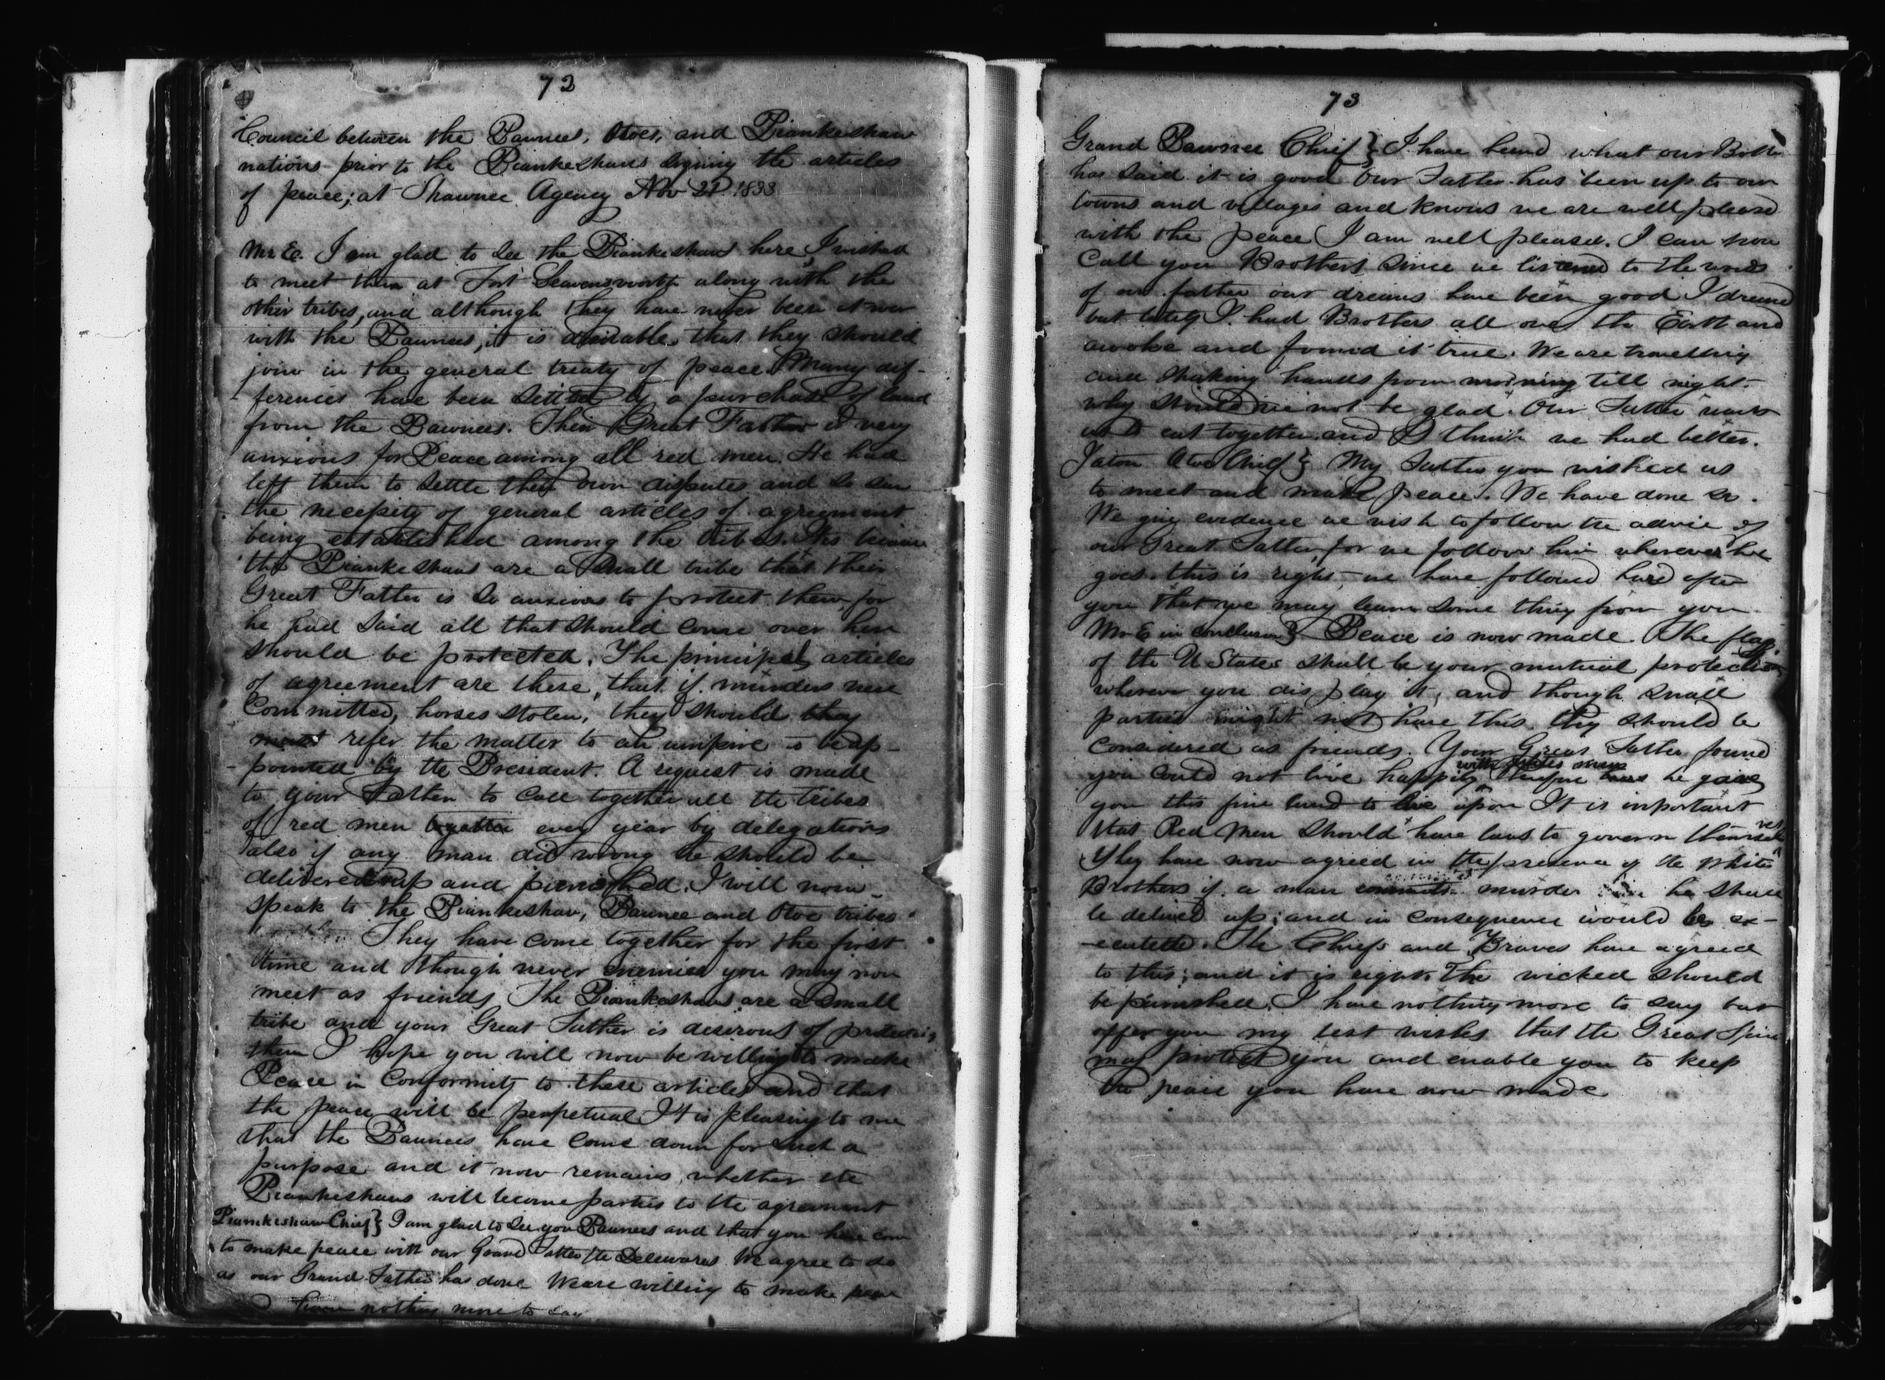 72
Council between the Pawnees, Otoes, and Piankeshaw
nations prior to the Piankeshaws signing the articles
of peace; at Shawnee Agency Nov 21 1833
Mr E. I am glad to see the Piankeshaws here, I wished
to meet them at Fort Leavensworth along with the
other tribes, and although they have never been at war
with the Pawnees, it is desirable that they should
join in the general treaty of peace. Many dif-
ferences have been settled by a purchase of land
from the Pawnees. Their Great Father is very
anxious for Peace among all red men. He had
left them to settle their own disputes and so saw
the necessity of general articles of agreement
being established among the tribes. It is because
the Piankeshaws are a small tribe that their
Great Father is so anxious to protect them for
he had said all that should come over here
should be protected. The principal articles
of agreement are these, that if murders were
Committed, horses stolen, they should they
must refer the matter to an umpire to be ap-
pointed by the President. A request is made
to your Father to call together all the tribes
of red men together every year by delegations
also if any man did wrong he should be
delivered up and punished. I will now
speak to the Piankeshaw, Pawnee and Otoe tribes
They have come together for the first
time and though never enemies you may now
meet as friends The Piankeshaws are a small
tribe and your Great Father is desirous of protecting
them I hope you will now be willing to make
Peace in Conformity to these articles and that
the peace will be perpetual It is pleasing to me
that the Pawnees have come down for such a
purpose and it now remains whether the
Piankeshaws will become parties to the agreement
Piankeshaw Chief} I am glad to see you Pawnees and that you have come
to make peace with our Grand Father the Delewares We agree to do
as our Grand Father has done We are willing to make peace
I have nothing more to say
73
Grand Pawnee Chief} I have heard what our Brother
has said it is good Our Father has been up to our
towns and villages and knows we are well pleased
with the peace I am well pleased. I can now
Call you Brothers since we listened to the words
of our father our dreams have been good I dreamed
but lately I had Brothers all over the Earth and
awoke and found it true. We are travelling
and shaking hands from morning till night-
why should we not be glad. Our Father wants
us to eat together and I think we had better.
Jatan Otoe Chief} My Father you wished us
to meet and make peace. We have done so.
We give evidence we wish to follow the advice of
our Great Father, for we follow him wherever he
goes. this is right, we have followed hard after
you that we may learn some thing from you
Mr E in conclusion} Peace is now made The flag
of the U States shall be your mutual protection
wherever you display it, and though small
parties might not have this they should be
Considered as friends. Your Great Father found
you could not live happily with white men therefore he gave
you this fine land to live upon It is important
that Red Men should have laws to govern themselves
They have now agreed in the presence of the White
Brothers if a man commits murder he shall
be delivered up; and in consequence would be ex-
ecuted. The Chiefs and Braves have agreed
to this; and it is right. The wicked should
be punished. I have nothing more to say but
offer you my best wishes that the Great Spirit
may protect you and enable you to keep
the peace you have now made